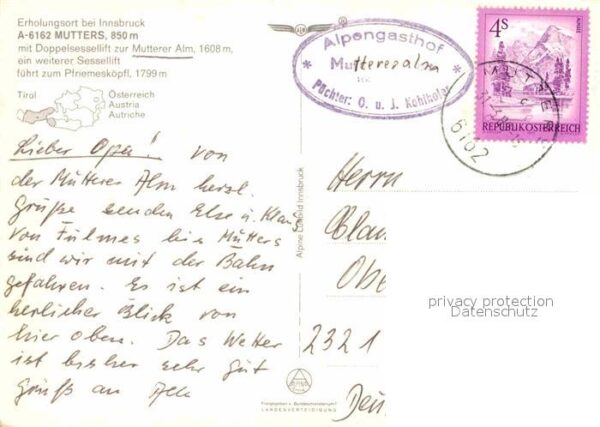 Erholungsort bei Innsbruck
A-6162 MUTTERS, 850 m
mit Doppelsessellift zur Mutterer Alm, 1608 m,
ein weiterer Sessellift
führt zum Pfriemesköpfl, 1799 m
Tirol
Österreich
Austria
Autriche
Alpengasthof
Muttereralm
Pächter: G. u. J. Kohlhofer
4S
REPUBLIK ÖSTERREICH
MUTTERS
6162
Lieber Opa! von
der Mutterer Alm herzl.
Grüße senden Else u. Klaus
von Fulmes bis Mutters
sind wir mit der Bahn
gefahren. Es ist ein
herlicher Blick von
hier oben. Das Wetter
ist bisher sehr gut
Gruß an Alle
Alpine Luftbild Innsbruck
Herrn
Klau
Obe
2321
Deu
privacy protection
Datenschutz
Freigegeben v. Bundesministerium f.
LANDESVERTEIDIGUNG